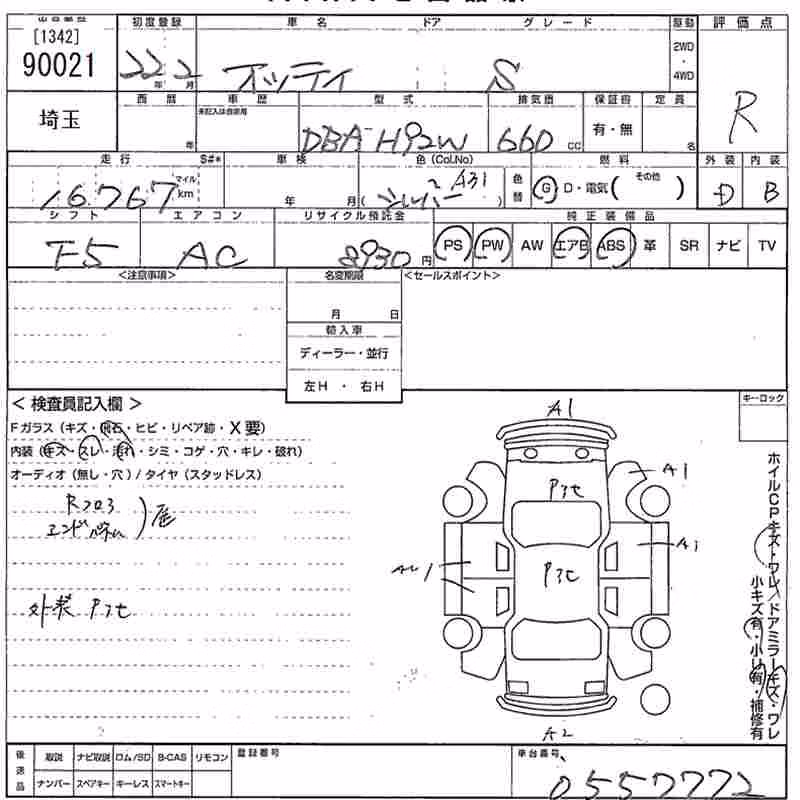 [1342]
90021
初度登録
車名 ドア グレード
駆動
評価点
22年2月
オッティ S
2WD
・
4WD
R
埼玉
西暦
車歴
型式
排気量
保証書
定員
年
未記入は自家用
DBA-H92W
660 CC
有・無
名
走行 S#*
車検
色(Col.No)
色替
燃料
外装
内装
16,767
マイル
km
年 月
(シルバー A31)
G D・電気(その他)
D
B
シフト
エアコン
リサイクル預託金
純正装備品
F5
AC
8930円
PS PW AW エアB ABS 革 SR ナビ TV
<注意事項>
名変期限
<セールスポイント>
月 日
輸入車
ディーラー・並行
左H ・ 右H
<検査員記入欄>
キーロック
Fガラス(キズ・飛石・ヒビ・リペア跡・X要)
内装(キズ・スレ・汚れ・シミ・コゲ・穴・キレ・破れ)
オーディオ(無し・穴)/タイヤ(スタッドレス)
Rフロア
エンドパネル
外装 Pオセ
A1
A1
A1
A2
ホイルCPキズ・ワレ/ドアミラーキズ・ワレ
小キズ有・小凹有・補修有
後送品
取説 ナビ取説 ロム/SD B-CAS リモコン
ナンバー スペアキー キーレス スマートキー
登録番号
車台番号
0557772